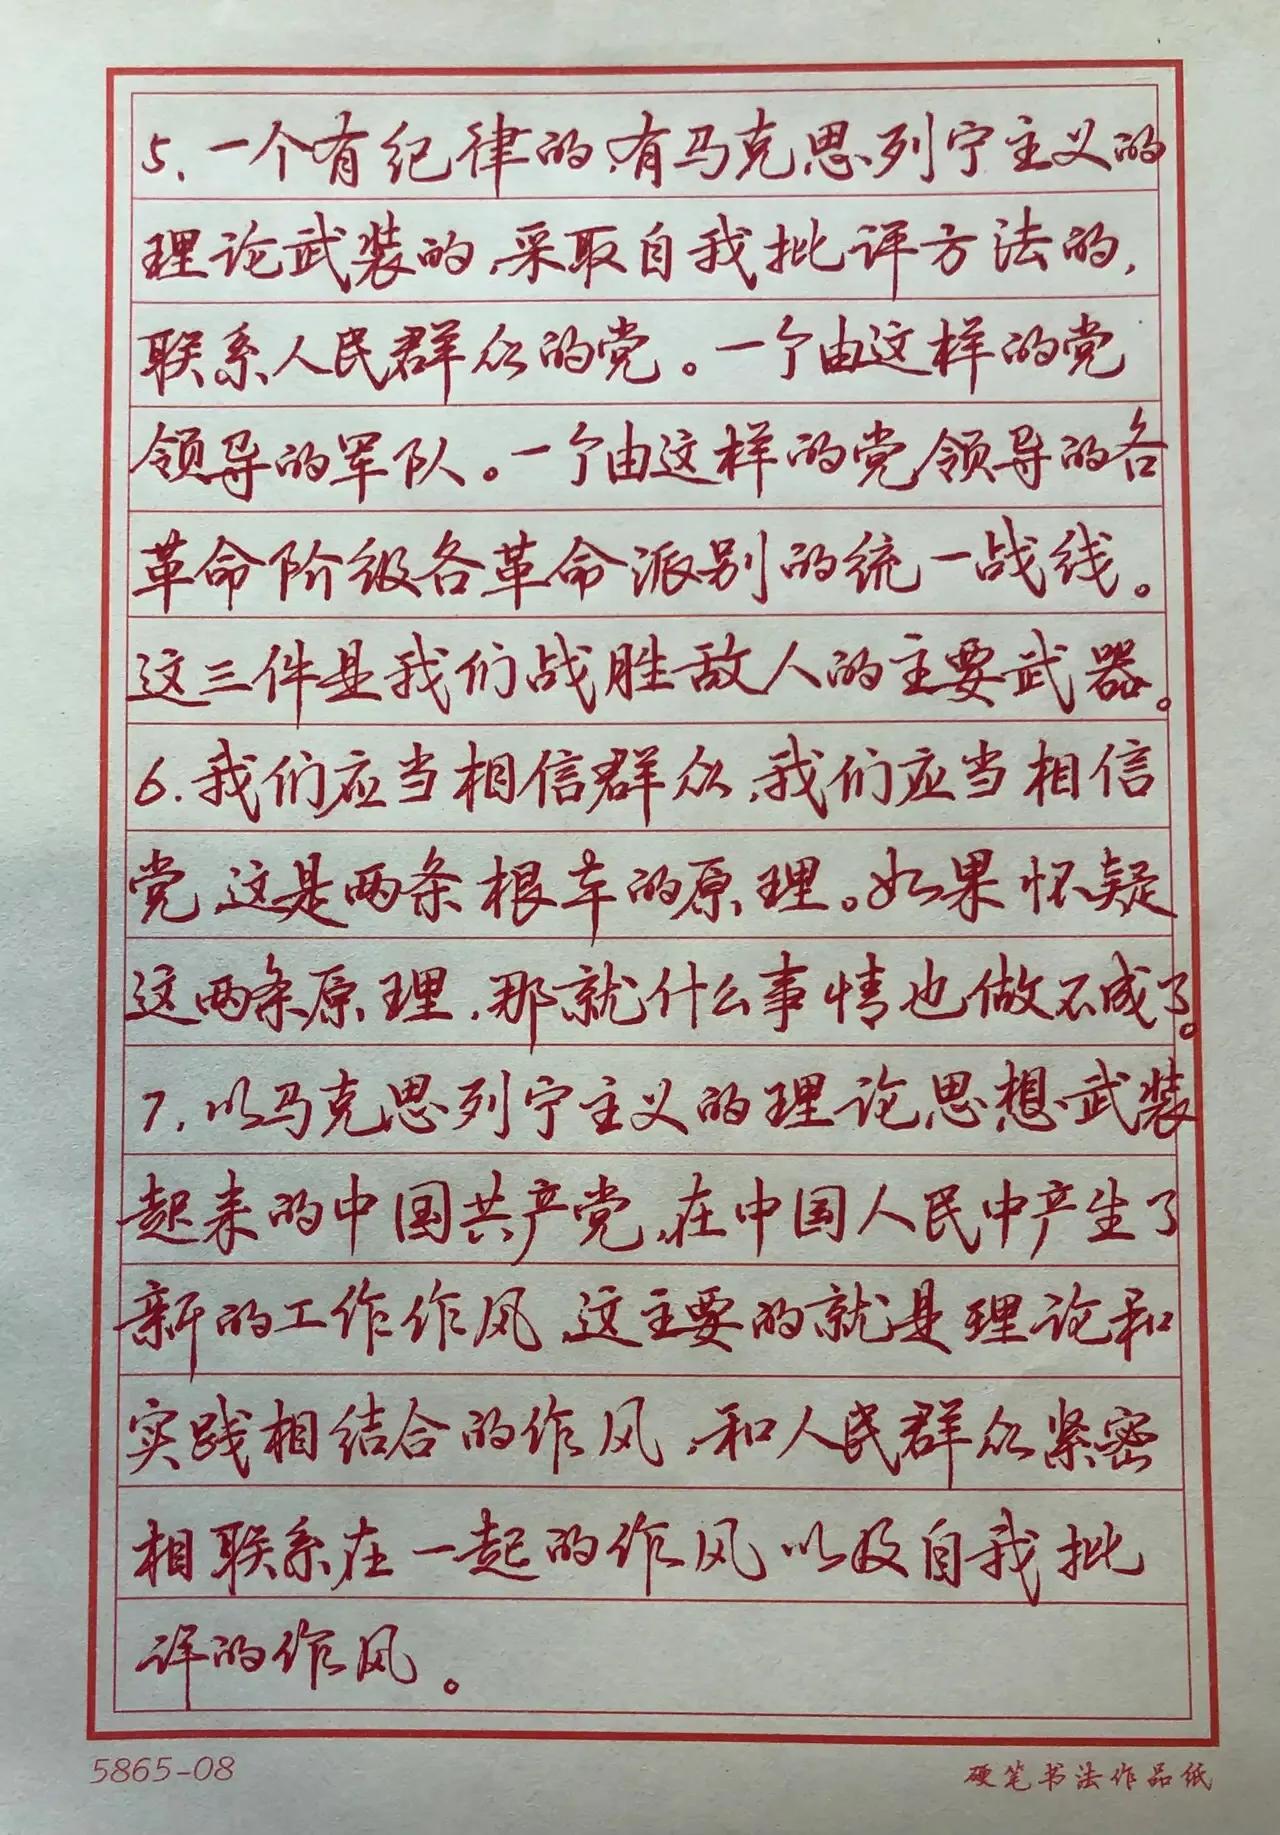 5.一个有纪律的,有马克思列宁主义的
理论武装的,采取自我批评方法的,
联系人民群众的党。一个由这样的党
领导的军队。一个由这样的党领导的各
革命阶级各革命派别的统一战线。
这三件是我们战胜敌人的主要武器。
6.我们应当相信群众,我们应当相信
党,这是两条根本的原理。如果怀疑
这两条原理,那就什么事情也做不成了。
7.以马克思列宁主义的理论思想武装
起来的中国共产党,在中国人民中产生了
新的工作作风,这主要的就是理论和
实践相结合的作风,和人民群众紧密
相联系在一起的作风以及自我批
评的作风。
5865-08
硬笔书法作品纸